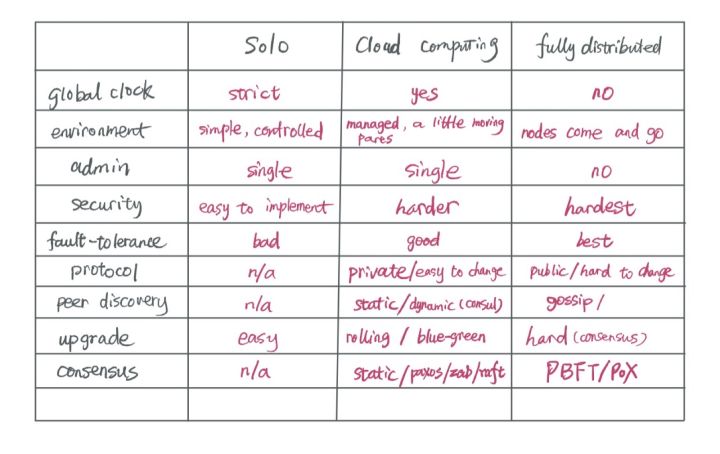 Solo Cloud computing fully distributed
global clock strict yes no
environment simple, controlled managed, a little moving parts nodes come and go
admin single single no
security easy to implement harder hardest
fault-tolerance bad good best
protocol n/a private/easy to change public/hard to change
peer discovery n/a static/dynamic (consul) gossip/
upgrade easy rolling / blue-green hard (consensus)
consensus n/a static/paxos/zab/raft PBFT/PoX